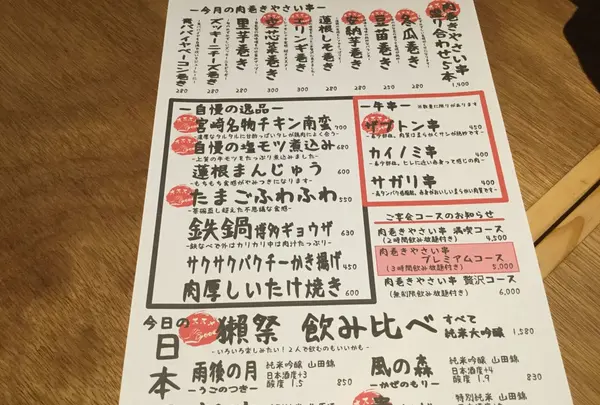 ー今月の肉巻きやさい串ー
肉巻きやさい串
盛り合わせ5本
1,400
冬瓜巻き
280
豆苗巻き
280
安納芋巻き
300
蓮根しそ巻き
280
エリンギ巻き
300
空芯菜巻き
300
里芋巻き
280
ズッキーニチーズ巻き
280
青パパイヤベーコン巻き
280
ー自慢の逸品ー
宮崎名物チキン南蛮 900
自慢の塩モツ煮込み 680
-上質の牛モツをたっぷり煮込みました-
蓮根まんじゅう 600
-もちもち食感がやみつきになります-
たまごふわふわ 550
-茶碗蒸し超えた不思議な食感-
鉄鍋博多ギョウザ 630
-鉄なべで外はカリカリ中は肉汁たっぷり-
サクサクパクチーかき揚げ 450
肉厚しいたけ焼き 600
ー牛串ー
※数量に限りがあります
ザブトン串 450
カイノミ串 400
サガリ串 400
ご宴会コースのお知らせ
肉巻きやさい串 満喫コース
(2時間飲み放題付き) 4,500
肉巻きやさい串
プレミアムコース
(3時間飲み放題付き) 5,000
肉巻きやさい串 贅沢コース
(無制限飲み放題付き) 6,000
今日の日本
オススメ
good
獺祭 飲み比べ すべて
純米大吟醸 1,580
-いろいろ楽しみたい!2人で飲むのもいいかも-
雨後の月
-うごのつき-
純米吟醸 山田錦
日本酒度+3
酸度 1.5 850
風の森
-かぜのもり-
純米吟醸 山田錦
日本酒度+4
酸度 1.9 830
特別純米 山田錦